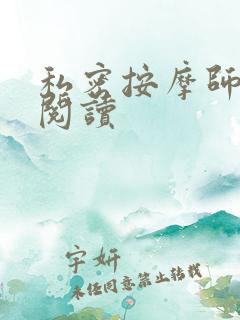 私密按摩師
閱讀
宇妍
未经同意禁止转载